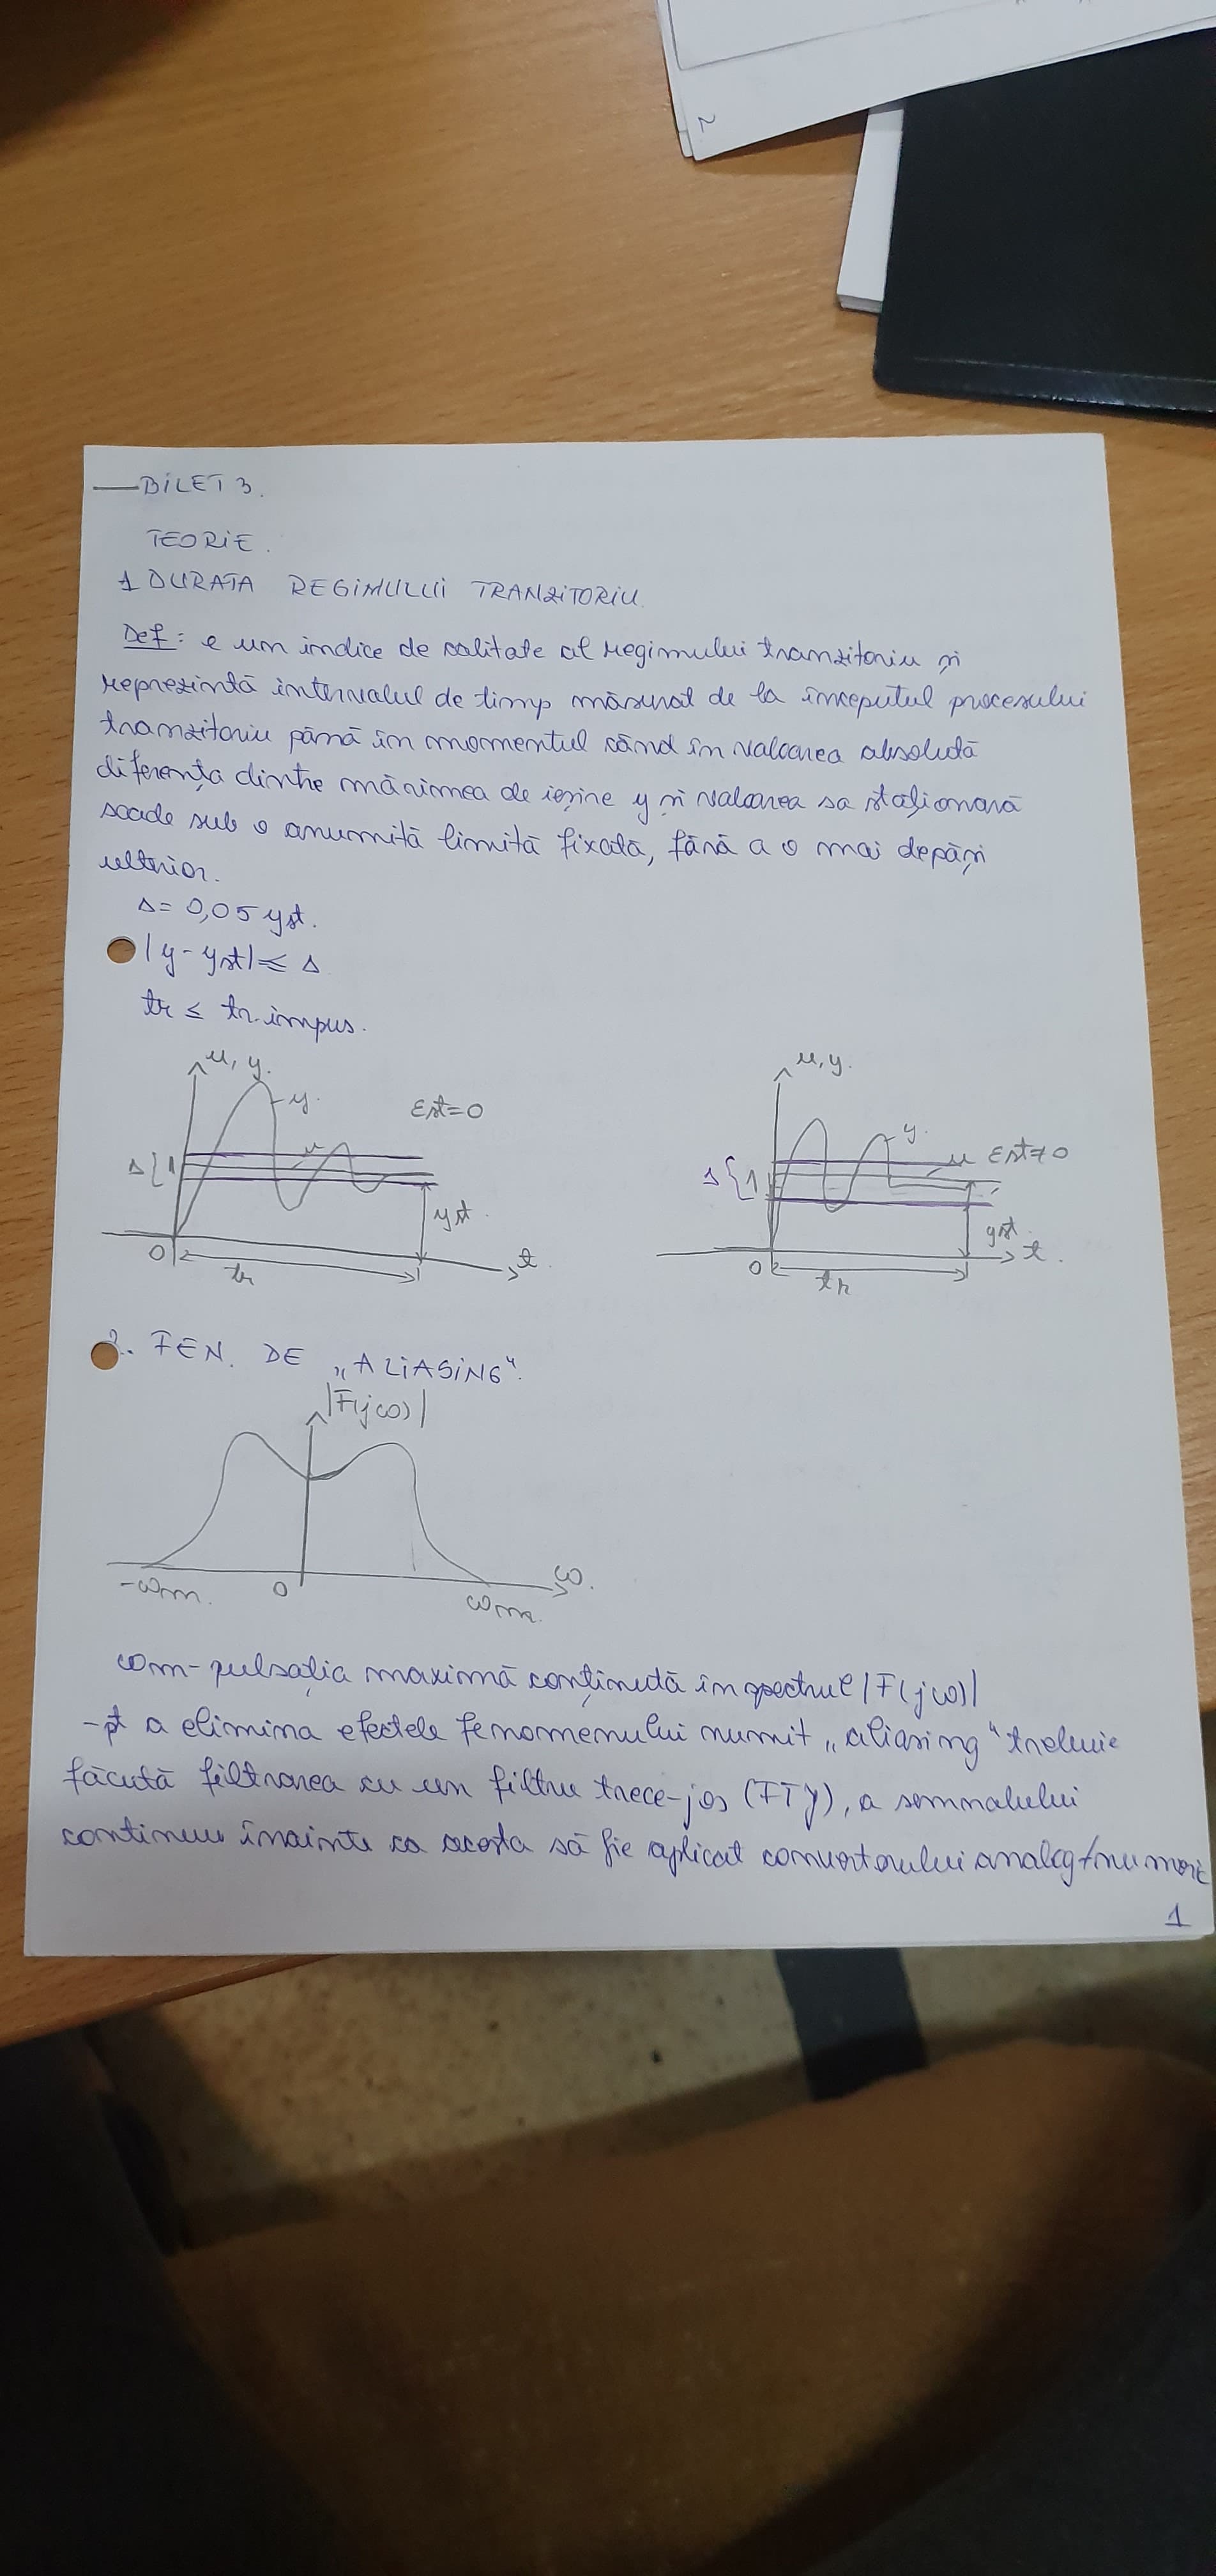 BILET 3.
TEORIE.
1 DURATA REGIMULUI TRANZITORIU.
Def: e un indice de calitate al regimului tranzitoriu și
reprezintă intervalul de timp măsurat de la începutul procesului
tranzitoriu până în momentul când în valoarea absolută
diferența dintre mărimea de ieșire y și valoarea sa staționară
scade sub o anumită limită fixată, fără a o mai depăși
ulterior.
Δ= 0,05 yst.
|y-yst| ≤ Δ
tr ≤ tr.impus.
u, y.
y.
εst=0
u
Δ{ 1
yst.
0
tr
t.
u,y.
y.
u
εst≠0
Δ{ 1
yst.
0
tr
t.
2. FEN. DE „ALIASING".
|F(jω)|
-ωm.
0
ωm.
ω.
ωm-pulsația maximă conținută în spectrul |F(jω)|
-pt a elimina efectele fenomenului numit „aliasing" trebuie
făcută filtrarea cu un filtru trece-jos (FTJ), a semnalului
continuu înainte ca acesta să fie aplicat convertorului analog/numeric
1